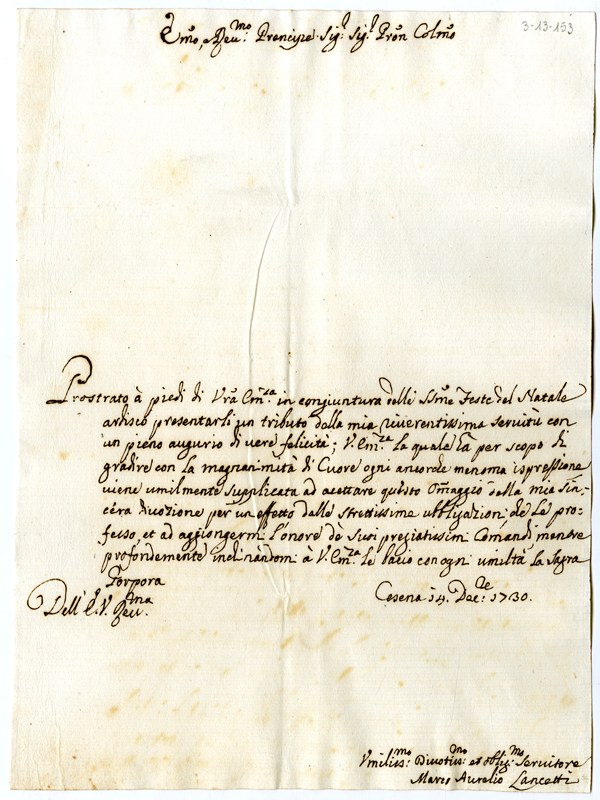 3-13-153
Emo, e Reu:mo Prencipe Sig:r Sig:r Pron Colmo
Prostrato à piedi di Vrā Em:za in congiuntura delli SSme Feste del Natale
ardisco presentarli un tributo della mia riuerentissima seruitù con
un pieno augurio di uere felicità; V. Em:za la quale hà per scopo di
gradire con la magnanimità di Cuore ogni ancorche menoma espressione
uiene umilmente supplicata ad acettare questo Omaggio della mia sin-
cera diuozione per un effetto delle strettissime ubligazioni, che le pro-
fesso, et ad aggiongermi l'onore dè Suoi pregiatissimi Comandi mentre
profondemente inclinandomi à V. Em:za le bacio con ogni umiltà la sagra
Porpora
Dell' E. V. Reu:ma
Cesena 14. Dec:re 1730.
Vmiliss:mo Diuotiss:mo et oblig:mo Seruitore
Marco Aurelio Lancetti